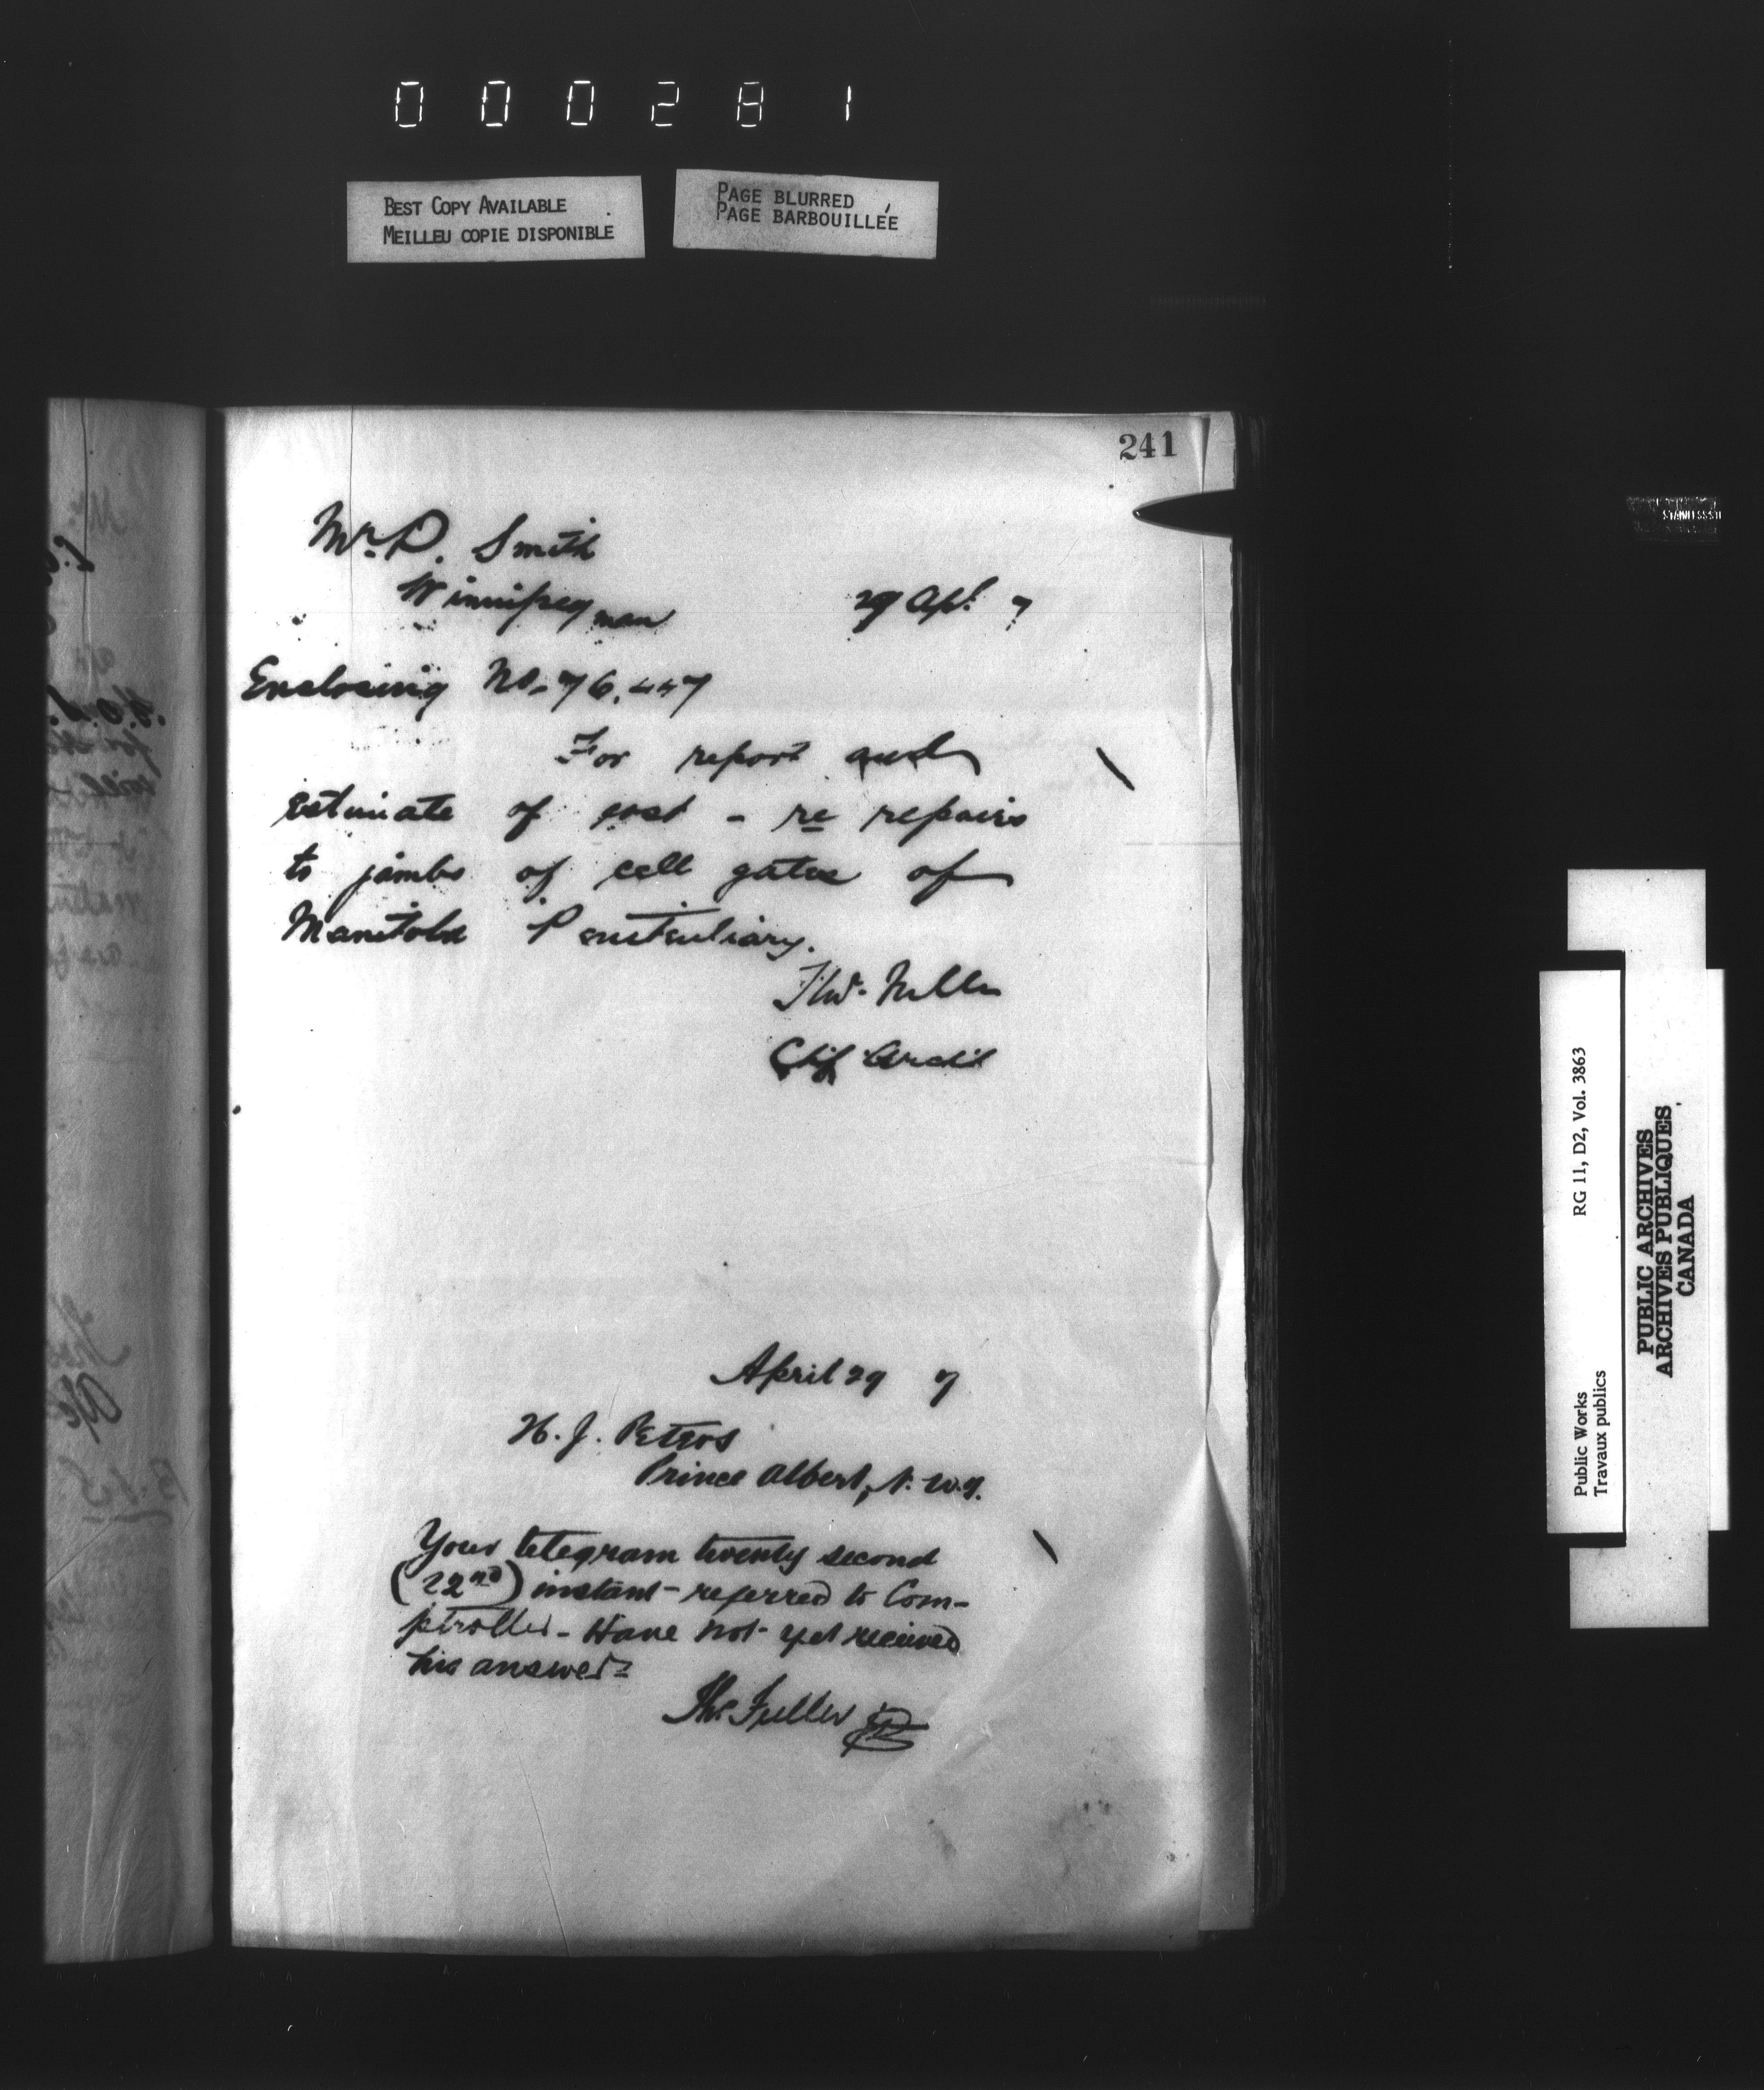 000281
BEST COPY AVAILABLE
MEILLEU COPIE DISPONIBLE
PAGE BLURRED
PAGE BARBOUILLÉE
241
Mr. P. Smith
Winnipeg Man
29 Apl. 7
Enclosing No. 76,447
For report and
Estimate of cost - re repairs
to jambs of cell gates of
Manitoba Penitentiary.
Chif Archit
April 29 7
H. J. Peters
Prince Albert, N.W.T.
Your telegram twenty second
(22nd) instant - referred to Com-
ptroller - Have not yet received
his answer.
Tho. Fuller
Public Works
Travaux publics
RG 11, D2, Vol. 3863
PUBLIC ARCHIVES
ARCHIVES PUBLIQUES
CANADA